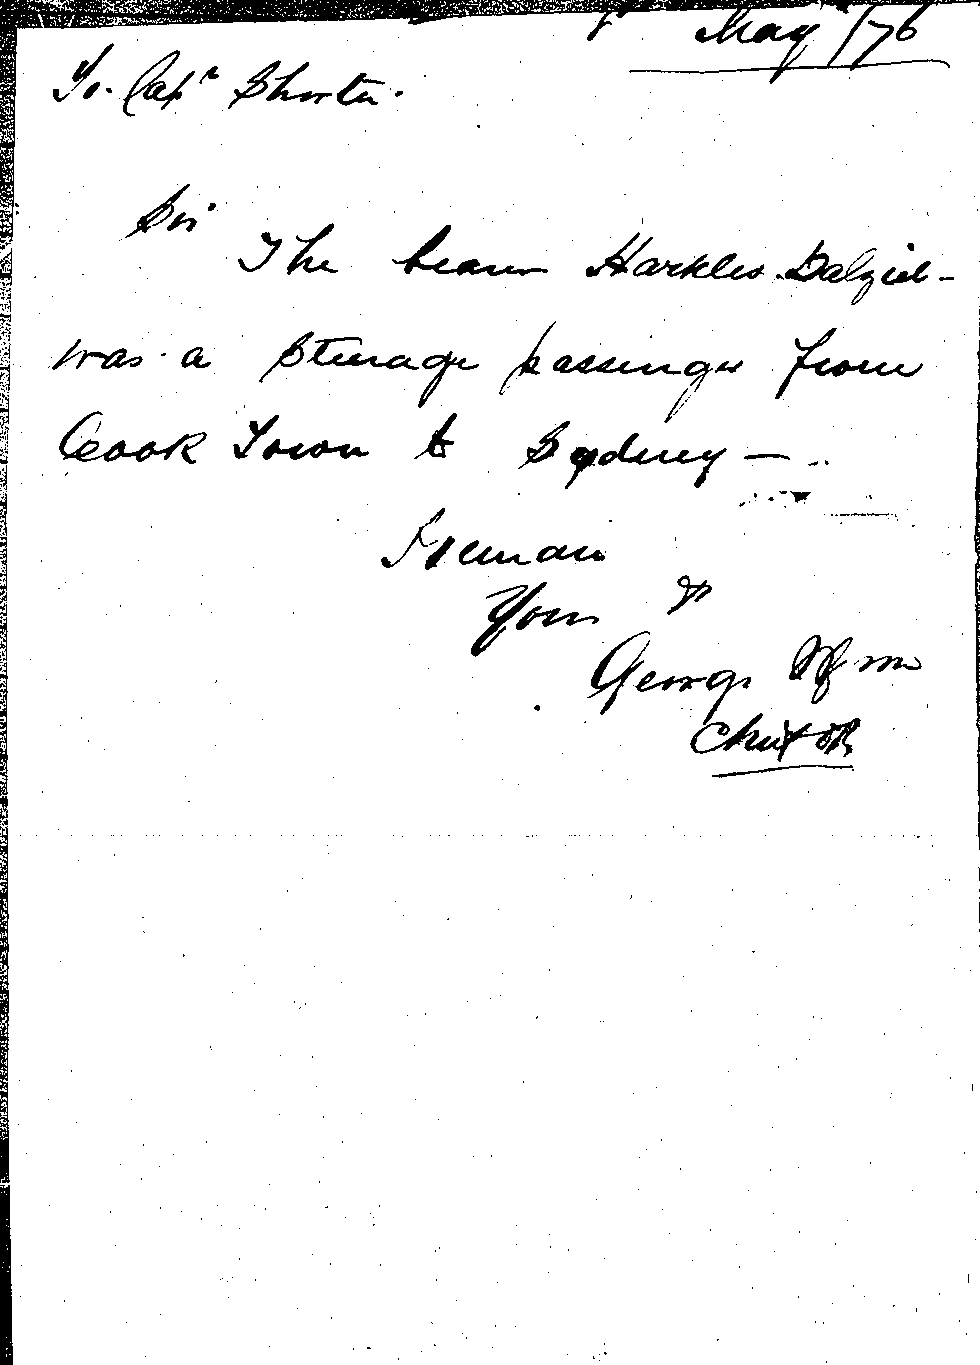 May /76
To. Capn Shorter.
Sir
The bearer Harkles Dalziel -
was a Steerage passenger from
Cook Town to Sydney —
I remain
Yours &
George
Chief Off